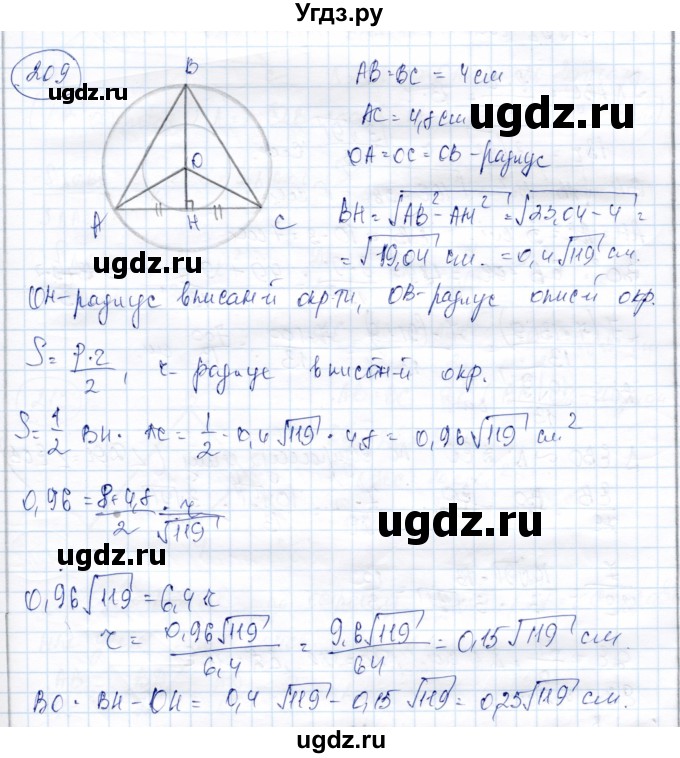 Угдз.ру
209
ugdz.ru
B
O
A
H
C
AB = BC = 4 см
AC = 4,8 см
ugdz.ru
OA = OC = CB - радиус
BH = √AB² - AH² = √23,04 - 4 =
= √19,04 см. = 0,4√119 см.
ugdz.ru
OH - радиус вписан-й окр-ти, OB - радиус опис-й окр.
S = P·r/2, r - радиус вписан-й окр.
S = 1/2 BH · AC = 1/2 · 0,4√119 · 4,8 = 0,96√119 см²
0,96 = 8+4,8/2 · r/√119
ugdz.ru
ugdz.ru
0,96√119 = 6,4 r
r = 0,96√119/6,4 = 9,6√119/64 = 0,15√119 см.
BO = BH - OH = 0,4√119 - 0,15√119 = 0,25√119 см.
ugdz.ru